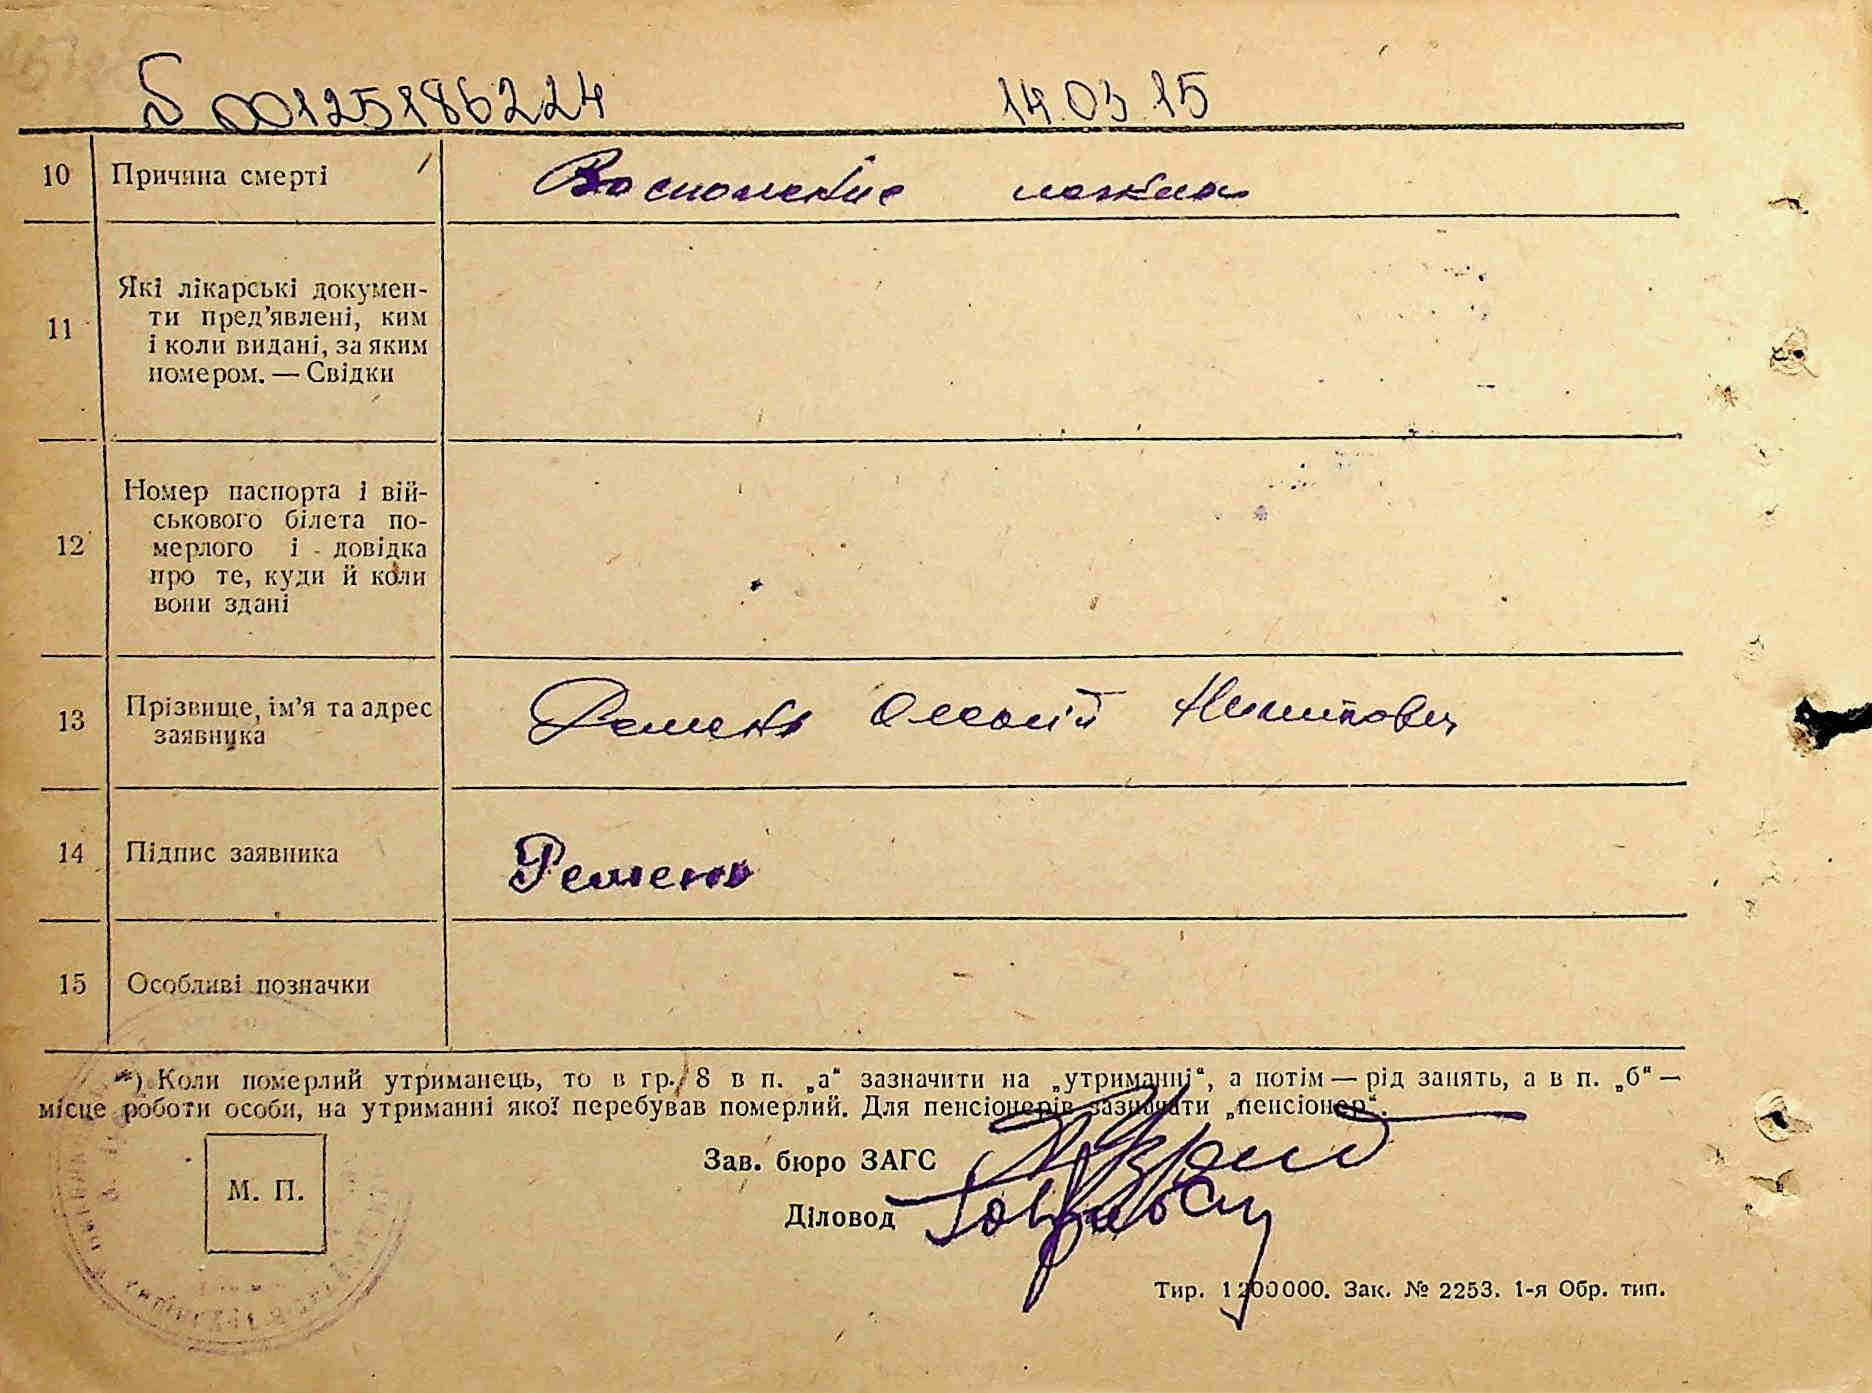 S 00125186224 14.03.15
10 Причина смерті
11 Які лікарські докумен-
ти пред'явлені, ким
і коли видані, за яким
номером. — Свідки
12 Номер паспорта і вій-
ськового білета по-
мерлого і довідка
про те, куди й коли
вони здані
13 Прізвище, ім'я та адрес
заявника
Ремень Олексій
14 Підпис заявника Ремень
15 Особливі позначки
*) Коли померлий утриманець, то в гр. 8 в п. „а“ зазначити на „утриманні“, а потім — рід занять, а в п. „б“ —
місце роботи особи, на утриманні якої перебував померлий. Для пенсіонерів зазначати „пенсіонер“.
Зав. бюро ЗАГС
М. П.
Діловод
Тир. 1200000. Зак. № 2253. 1-я Обр. тип.